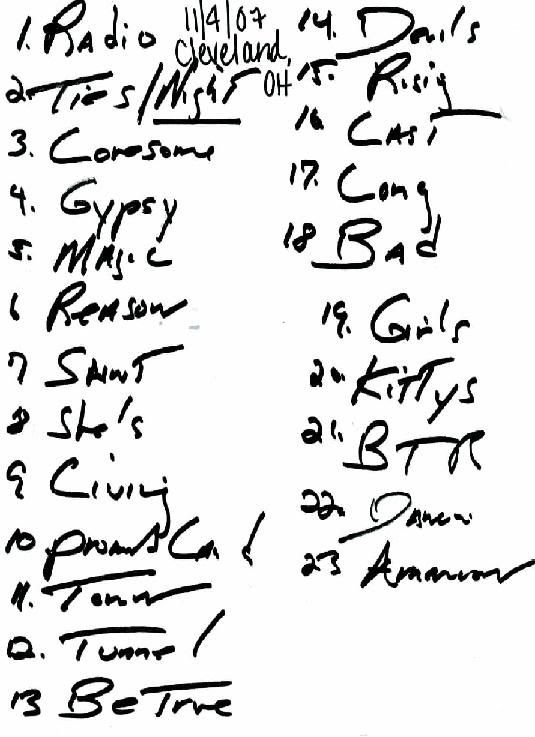 11/4/07
Cleveland,
OH
1. Radio
2. Ties/Night
3. Lonesome
4. Gypsy
5. Magic
6 Reason
7 Saint
8 She's
9 Living
10 Promised Land
11. Town
12. Tunnel
13 Be True
14. Devils
15. Rising
16 Last
17. Long
18 Bad
19. Girls
20. Kittys
21. BTR
22. Dancin
23 American